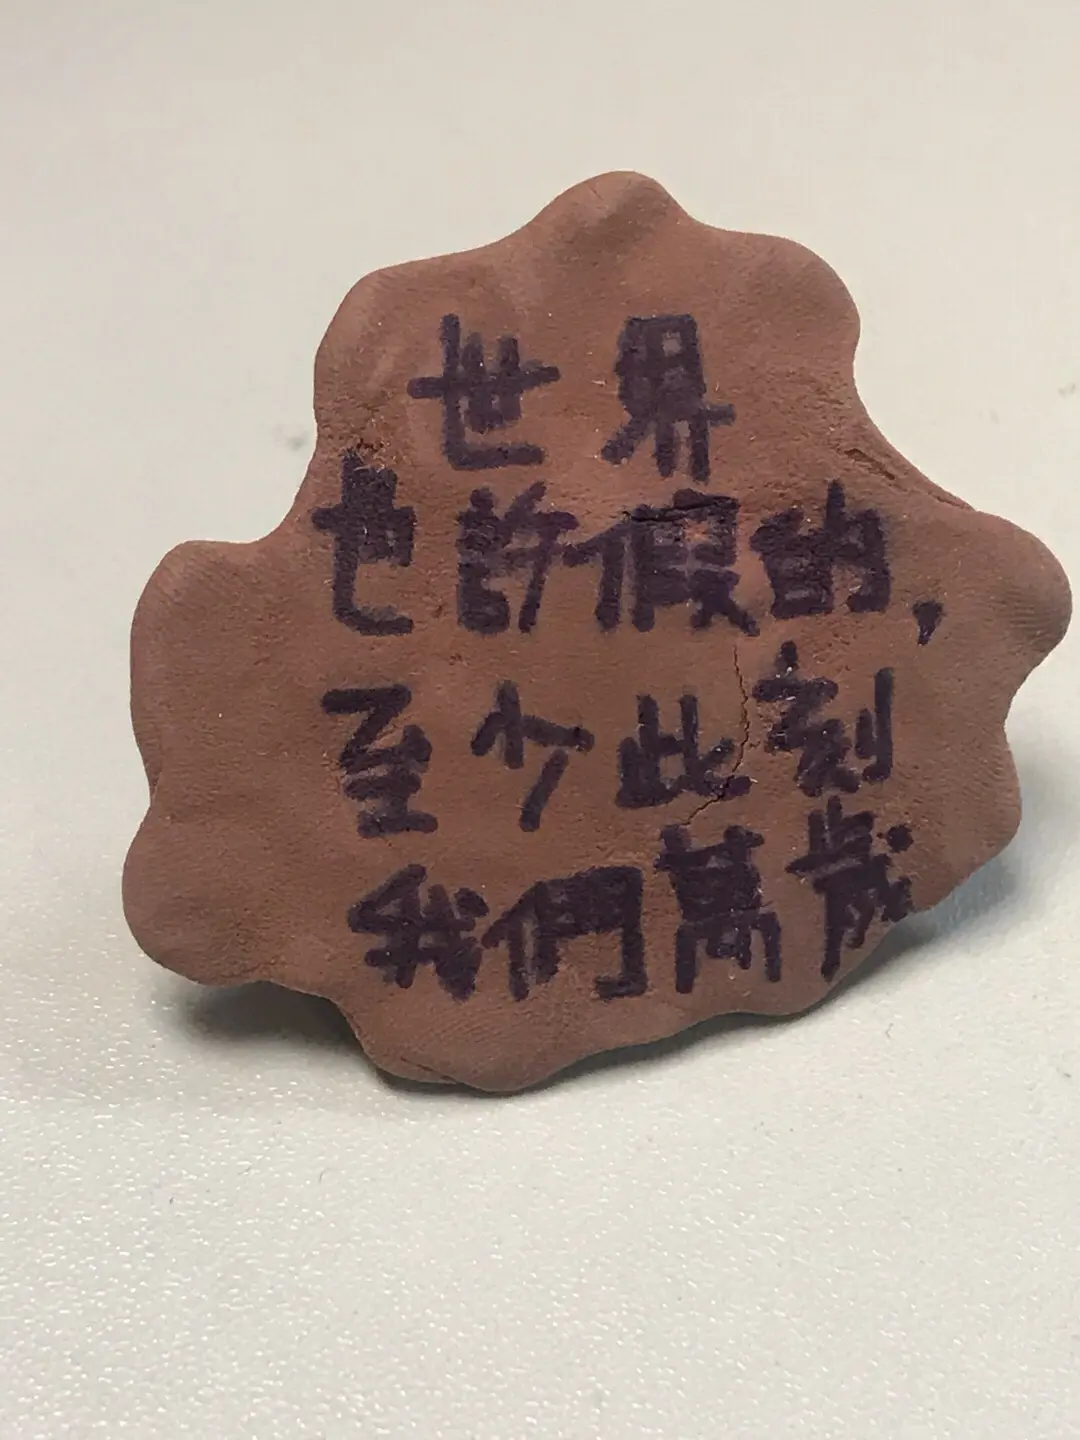 世界
也許假的,
至少此刻
我們萬歲